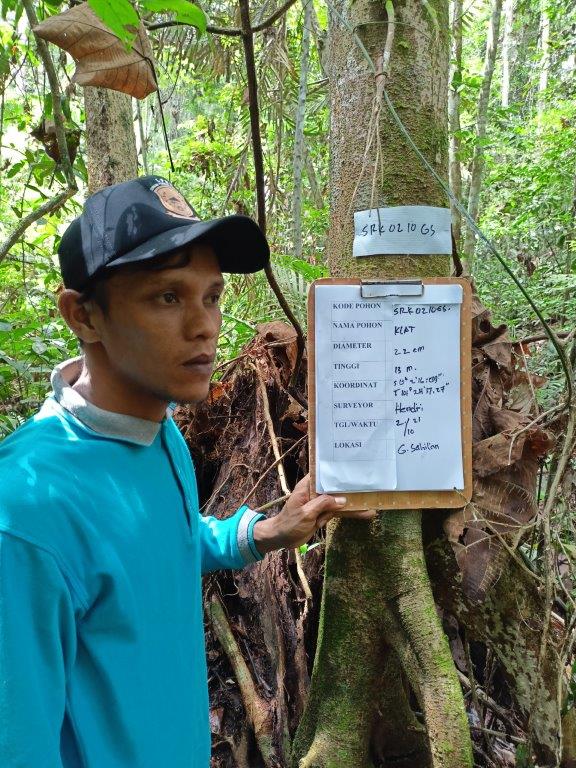 SRK0210GS
KODE POHON SRK0210GS.
NAMA POHON KLAT
DIAMETER 22 cm
TINGGI 13 m.
KOORDINAT
SURVEYOR Hendri
TGL/WAKTU 2/21
/10
LOKASI G. Sabilan